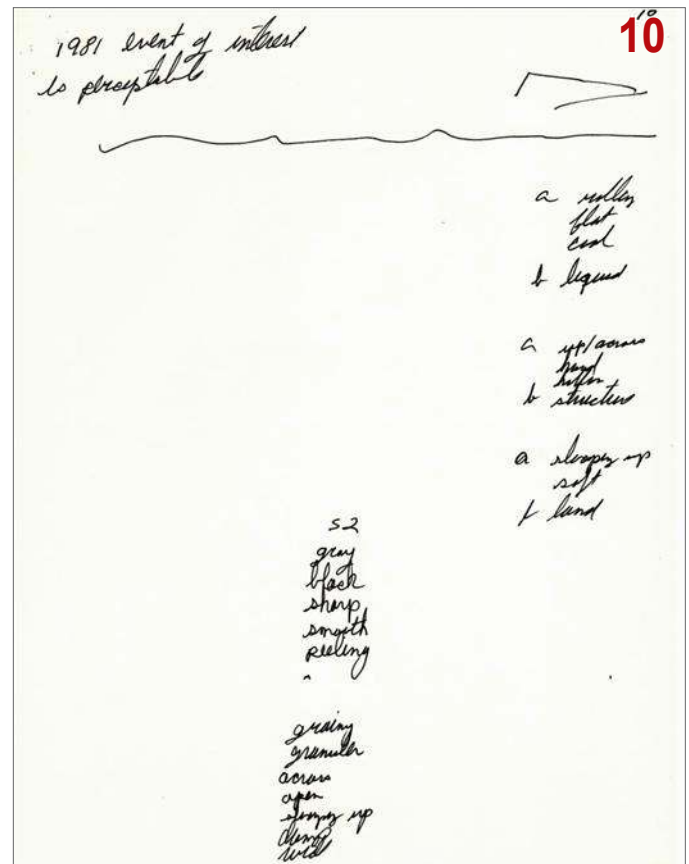 10
10
1981 event of interest
to perceptible
a rolling
flat
cool
b liquid
a up/across
hard
hollow
b structure
a sloping up
soft
b land
S2
gray
black
sharp
smooth
peeling
grainy
granular
across
open
sloping up
damp
wild